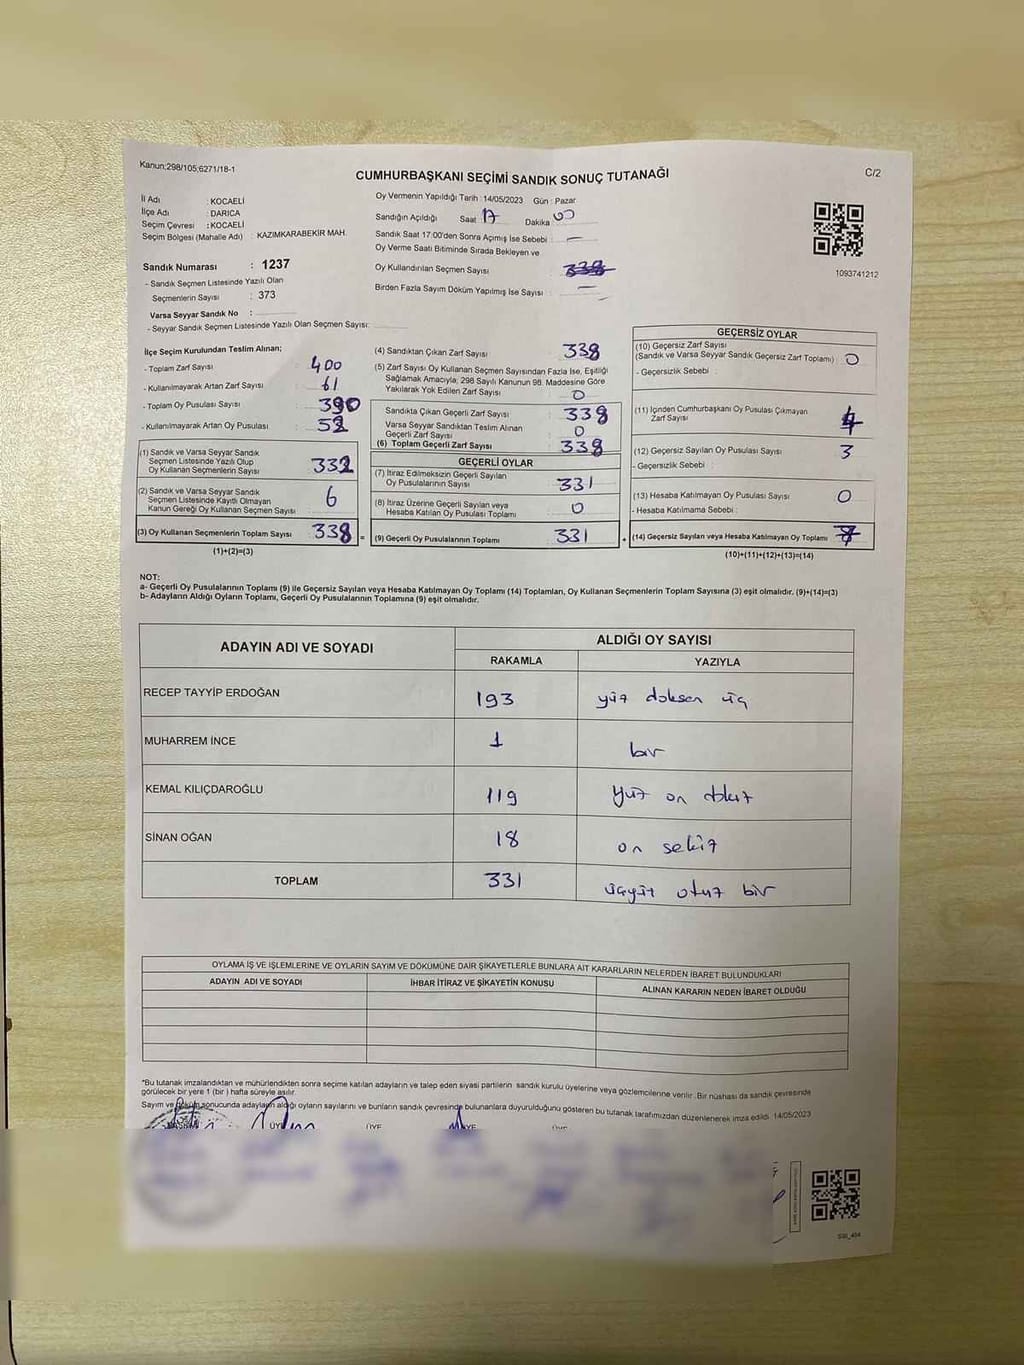 Kanun;298/105;6271/18-1
CUMHURBAŞKANI SEÇİMİ SANDIK SONUÇ TUTANAĞI
C/2
İl Adı : KOCAELİ
İlçe Adı : DARICA
Seçim Çevresi : KOCAELİ
Seçim Bölgesi (Mahalle Adı) : KAZIMKARABEKİR MAH.
Sandık Numarası : 1237
- Sandık Seçmen Listesinde Yazılı Olan
Seçmenlerin Sayısı : 373
Varsa Seyyar Sandık No :
- Seyyar Sandık Seçmen Listesinde Yazılı Olan Seçmen Sayısı:
Oy Vermenin Yapıldığı Tarih : 14/05/2023 Gün : Pazar
Sandığın Açıldığı Saat 17 Dakika 00
Sandık Saat 17:00'den Sonra Açımış İse Sebebi : —
Oy Verme Saati Bitiminde Sırada Bekleyen ve
Oy Kullandırılan Seçmen Sayısı : 338
Birden Fazla Sayım Döküm Yapılmış İse Sayısı : —
1093741212
İlçe Seçim Kurulundan Teslim Alınan;
- Toplam Zarf Sayısı : 400
- Kullanılmayarak Artan Zarf Sayısı : 61
- Toplam Oy Pusulası Sayısı : 390
- Kullanılmayarak Artan Oy Pusulası : 52
(1) Sandık ve Varsa Seyyar Sandık
Seçmen Listesinde Yazılı Olup
Oy Kullanan Seçmenlerin Sayısı 332
(2) Sandık ve Varsa Seyyar Sandık
Seçmen Listesinde Kayıtlı Olmayan
Kanun Gereği Oy Kullanan Seçmen Sayısı : 6
(3) Oy Kullanan Seçmenlerin Toplam Sayısı 338 =
(1)+(2)=(3)
(4) Sandıktan Çıkan Zarf Sayısı : 338
(5) Zarf Sayısı Oy Kullanan Seçmen Sayısından Fazla İse, Eşitliği
Sağlamak Amacıyla; 298 Sayılı Kanunun 98. Maddesine Göre
Yakılarak Yok Edilen Zarf Sayısı : 0
Sandıkta Çıkan Geçerli Zarf Sayısı : 338
Varsa Seyyar Sandıktan Teslim Alınan
Geçerli Zarf Sayısı : 0
(6) Toplam Geçerli Zarf Sayısı : 338
GEÇERLİ OYLAR
(7) İtiraz Edilmeksizin Geçerli Sayılan
Oy Pusulalarının Sayısı : 331
(8) İtiraz Üzerine Geçerli Sayılan veya
Hesaba Katılan Oy Pusulası Toplamı : 0
(9) Geçerli Oy Pusulalarının Toplamı : 331 +
GEÇERSİZ OYLAR
(10) Geçersiz Zarf Sayısı
(Sandık ve Varsa Seyyar Sandık Geçersiz Zarf Toplamı) : 0
- Geçersizlik Sebebi :
(11) İçinden Cumhurbaşkanı Oy Pusulası Çıkmayan
Zarf Sayısı : 4
(12) Geçersiz Sayılan Oy Pusulası Sayısı : 3
- Geçersizlik Sebebi :
(13) Hesaba Katılmayan Oy Pusulası Sayısı : 0
- Hesaba Katılmama Sebebi :
(14) Geçersiz Sayılan veya Hesaba Katılmayan Oy Toplamı : 7
(10)+(11)+(12)+(13)=(14)
NOT:
a- Geçerli Oy Pusulalarının Toplamı (9) ile Geçersiz Sayılan veya Hesaba Katılmayan Oy Toplamı (14) Toplamları, Oy Kullanan Seçmenlerin Toplam Sayısına (3) eşit olmalıdır. (9)+(14)=(3)
b- Adayların Aldığı Oyların Toplamı, Geçerli Oy Pusulalarının Toplamına (9) eşit olmalıdır.
ADAYIN ADI VE SOYADI
ALDIĞI OY SAYISI
RAKAMLA YAZIYLA
RECEP TAYYİP ERDOĞAN 193 yüz doksan üç
MUHARREM İNCE 1 bir
KEMAL KILIÇDAROĞLU 119 yüz on dokuz
SİNAN OĞAN 18 on sekiz
TOPLAM 331 üçyüz otuz bir
OYLAMA İŞ VE İŞLEMLERİNE VE OYLARIN SAYIM VE DÖKÜMÜNE DAİR ŞİKAYETLERLE BUNLARA AİT KARARLARIN NELERDEN İBARET BULUNDUKLARI
ADAYIN ADI VE SOYADI İHBAR İTİRAZ VE ŞİKAYETİN KONUSU ALINAN KARARIN NEDEN İBARET OLDUĞU
*Bu tutanak imzalandıktan ve mühürlendikten sonra seçime katılan adayların ve talep eden siyasi partilerin sandık kurulu üyelerine veya gözlemcilerine verilir. Bir nüshası da sandık çevresinde
görülecek bir yere 1 (bir ) hafta süreyle asılır.
Sayım ve döküm sonucunda adayların aldığı oyların sayılarını ve bunların sandık çevresinde bulunanlara duyurulduğunu gösteren bu tutanak tarafımızdan düzenlenerek imza edildi. 14/05/2023
BAŞKAN ÜYE ÜYE ÜYE ÜYE